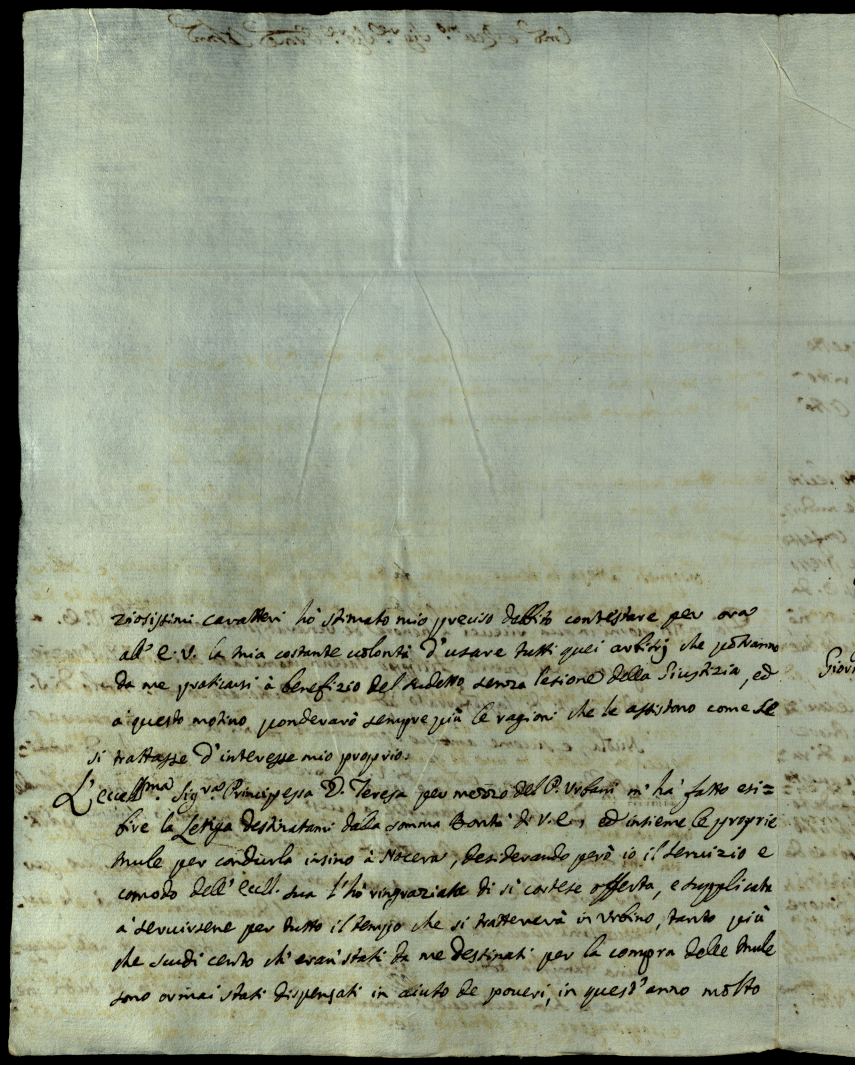 ziosissimi caratteri hò stimato mio preciso debbito contestare per ora
all' E. V. la mia costante volontà d'usare tutti quei arbitrij che potranno
da me praticarsi à benefizio del sudetto senza lesione della Giustizia, ed
à questo motivo ponderarò sempre più le ragioni che le assistono come se
si trattasse d'interesse mio proprio.
L'Eccell:ma Sig:ra Principessa D. Teresa per mezzo del P. Urbani m'hà fatto esi=
bire la Letiga destinatami dalla somma Bontà di V. E., ed insieme le proprie
Mule per condurla insino à Nocera, desiderando però io il servizio e
comodo dell' Ecell. sua l'hò ringraziata di sì cortese offerta, e supplicata
à servirsene per tutto il tempo che si tratterrà in Urbino, tanto più
che scudi cento ch'eran stati da me destinati per la compra delle Mule
sono ormai stati dispensati in aiuto de poveri, in quest'anno molto